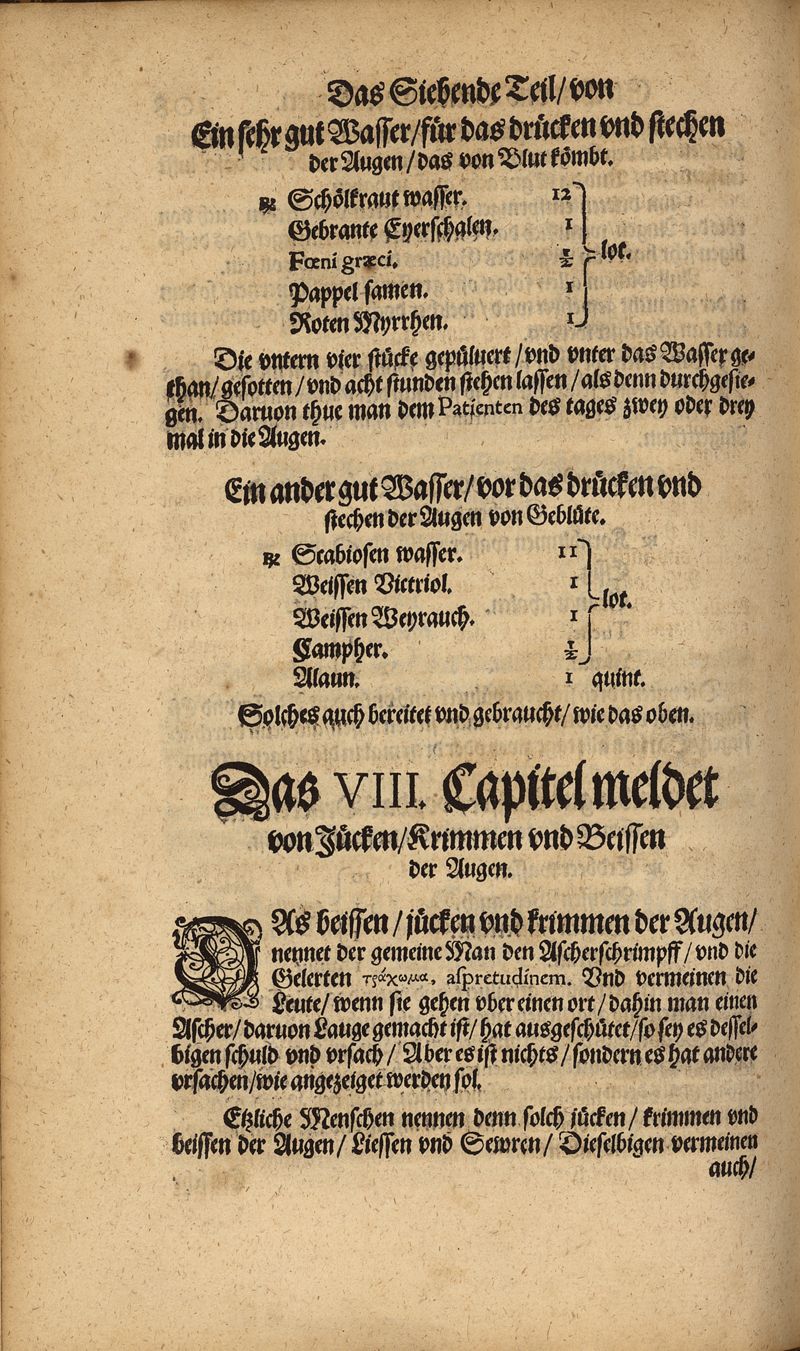 Das Siebende Teil/ von
Ein sehr gut Wasser/ für das drücken vnd stechen
der Augen/ das von Blut kömbt.
℞ Schölkraut wasser. 12
Gebrante Eyerschalen. 1
Fœni græci. ½ lot.
Pappel samen. 1
Roten Myrrhen. 1
Die vntern vier stücke gepüluert/ vnd vnter das Wasser ge-
than/ gesotten/ vnd acht stunden stehen lassen/ als denn durchgesie-
gen. Daruon thue man dem Patienten des tages zwey oder drey
mal in die Augen.
Ein ander gut Wasser/ vor das drücken vnd
stechen der Augen von Geblüte.
℞ Scabiosen wasser. 11
Weissen Victriol. 1
Weissen Weyrauch. 1 lot.
Campher. ½
Alaun. 1 quint.
Solches auch bereitet vnd gebraucht/ wie das oben.
Das VIII. Capitel meldet
von Jücken/ Krimmen vnd Beissen
der Augen.
DAs beissen/ jücken vnd krimmen der Augen/
nennet der gemeine Man den Ascherschrimpff/ vnd die
Gelerten τράχωμα, aspretudinem. Vnd vermeinen die
Leute/ wenn sie gehen vber einen ort/ dahin man einen
Ascher/ daruon Lauge gemacht ist/ hat ausgeschütet/ so sey es dessel-
bigen schuld vnd vrsach/ Aber es ist nichts/ sondern es hat andere
vrsachen/ wie angezeiget werden sol.
Etzliche Menschen nennen denn solch jücken/ krimmen vnd
beissen der Augen/ Liessen vnd Sewren/ Dieselbigen vermeinen
auch/